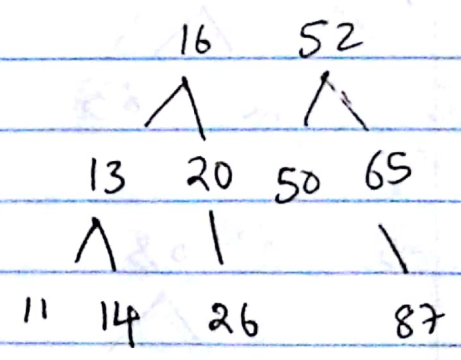 16 52
13 20 50 65
11 14 26 87